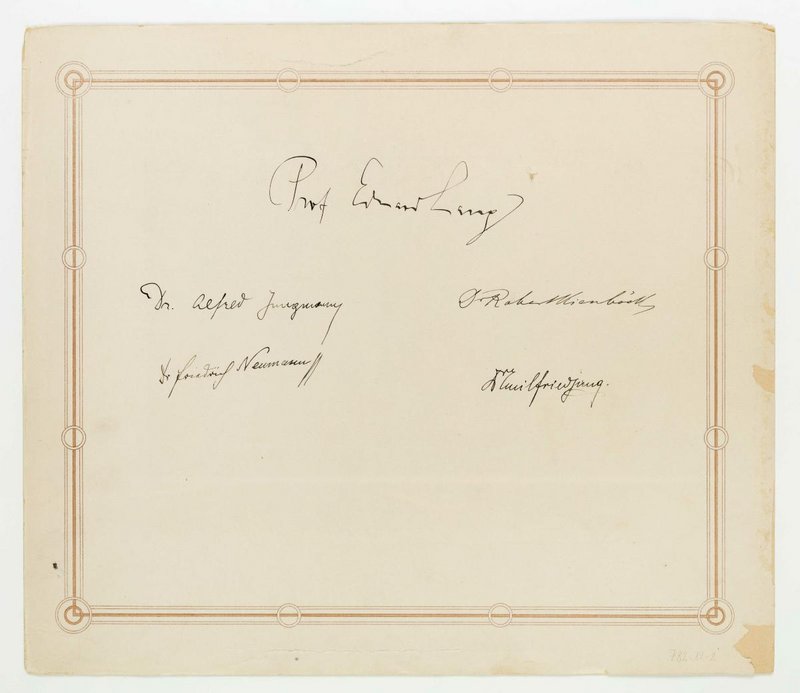 Prof Eduard Lang
Dr. Alfred Jungmann
Dr Robert Kienböck
Dr Friedrich Neumann
Dr Emil Friedjung.